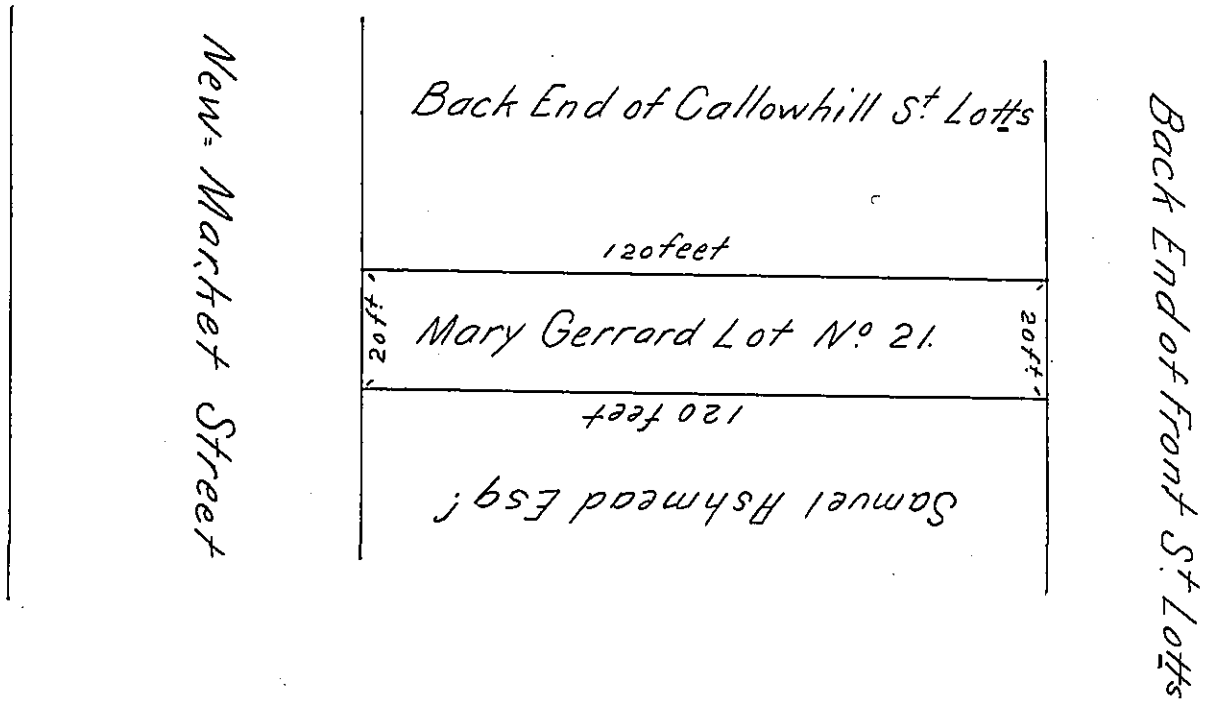 New=Market Street
Back End of Callowhill St Lotts
120 feet
20 ft.
Mary Gerrard Lot No 21.
20 ft.
120 feet
Samuel Ashmead Esqr.
Back End of Front St. Lotts